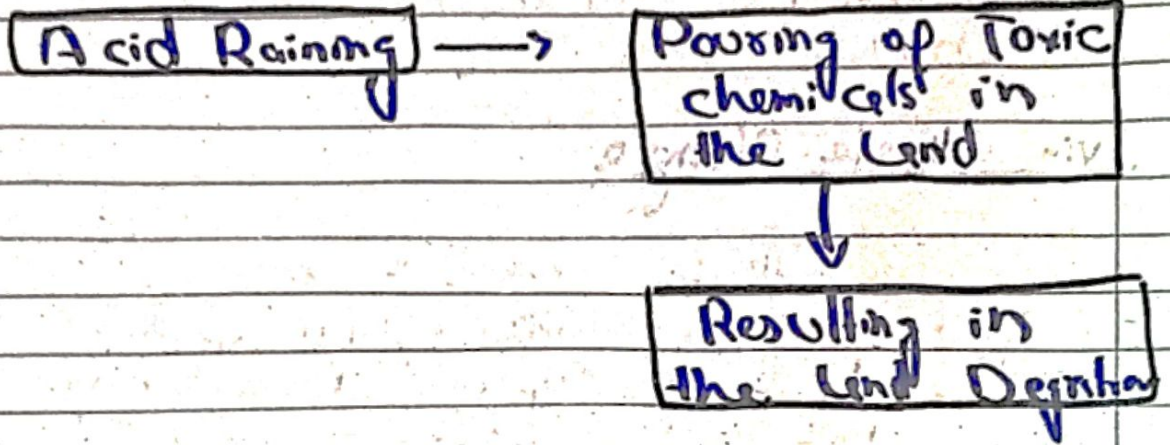 Acid Raining → Pouring of Toxic
chemicals in
the Land
↓
Resulting in
the Land